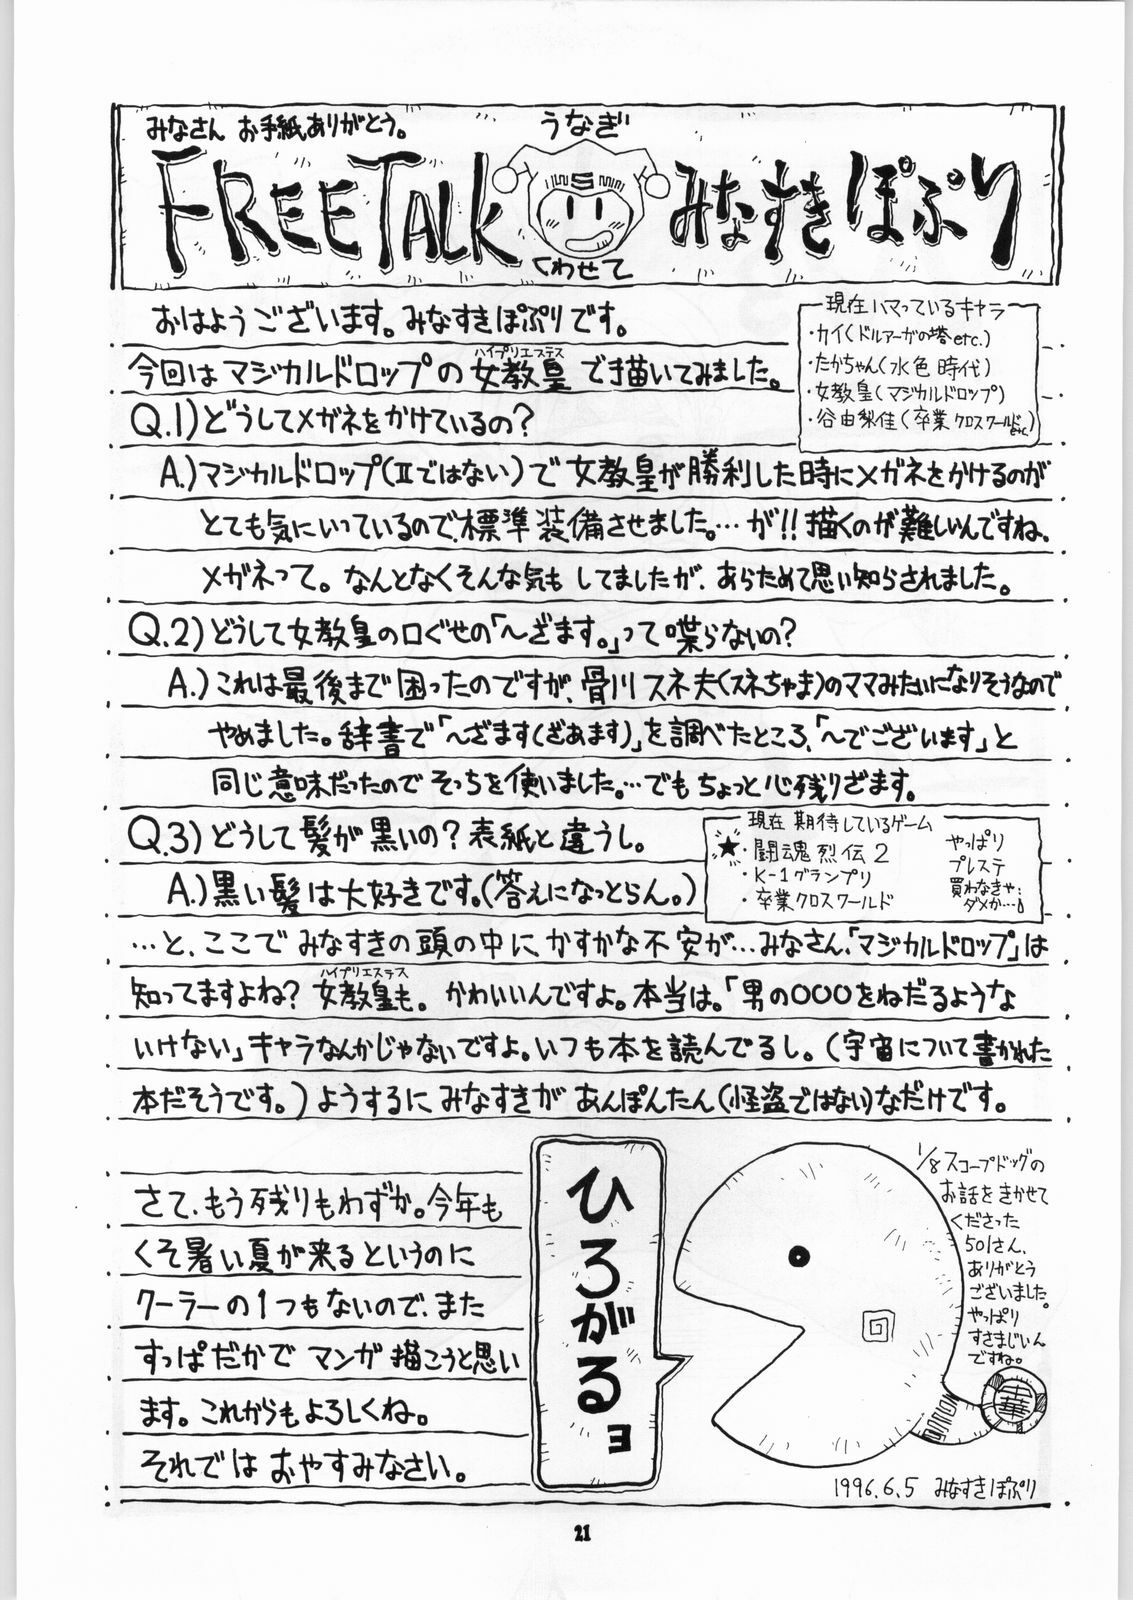 みなさん お手紙ありがとう。
うなぎ
FREE TALK みなすきぽぷり
くわせて
おはようございます。みなすきぽぷりです。
今回はマジカルドロップの女教皇で描いてみました。
ハイプリエステス
現在ハマっているキャラ
・カイ(ドルアーガの塔etc.)
・たかちゃん(水色時代)
・女教皇(マジカルドロップ)
・谷由梨佳(卒業クロスワールドetc.)
Q.1)どうしてメガネをかけているの?
A.)マジカルドロップ(Ⅱではない)で女教皇が勝利した時にメガネをかけるのが
とても気にいっているので、標準装備させました。…が!!描くのが難しいんですね、
メガネって。なんとなくそんな気もしてましたが、あらためて思い知らされました。
Q.2)どうして女教皇の口ぐせの「〜ざます。」って喋らないの?
A.)これは最後まで困ったのですが、骨川スネ夫(スネちゃま)のママみたいになりそうなので
やめました。辞書で「〜ざます(ざあます)」を調べたところ、「〜でございます」と
同じ意味だったのでそっちを使いました。…でもちょっと心残りざます。
Q.3)どうして髪が黒いの?表紙と違うし。
A.)黒い髪は大好きです。(答えになっとらん。)
現在期待しているゲーム
★・闘魂烈伝2
・K-1グランプリ
・卒業クロスワールド
やっぱり
プレステ
買わなきゃ
ダメか…。
…と、ここでみなすきの頭の中にかすかな不安が…みなさん、「マジカルドロップ」は
知ってますよね?女教皇も。かわいいんですよ。本当は。「男の○○○をねだるような
ハイプリエステス
いけない」キャラなんかじゃないですよ。いつも本を読んでるし。(宇宙について書かれた
本だそうです。)ようするにみなすきがあんぽんたん(怪盗ではない)なだけです。
さて、もう残りもわずか。今年も
くそ暑い夏が来るというのに
クーラーの1つもないので、また
すっぱだかでマンガ描こうと思い
ます。これからもよろしくね。
それではおやすみなさい。
ひろがるョ
1/8スコープドッグの
お話をきかせて
くださった
501さん、
ありがとう
ございました。
やっぱり
すさまじいん
ですね。
1996.6.5 みなすきぽぷり
21